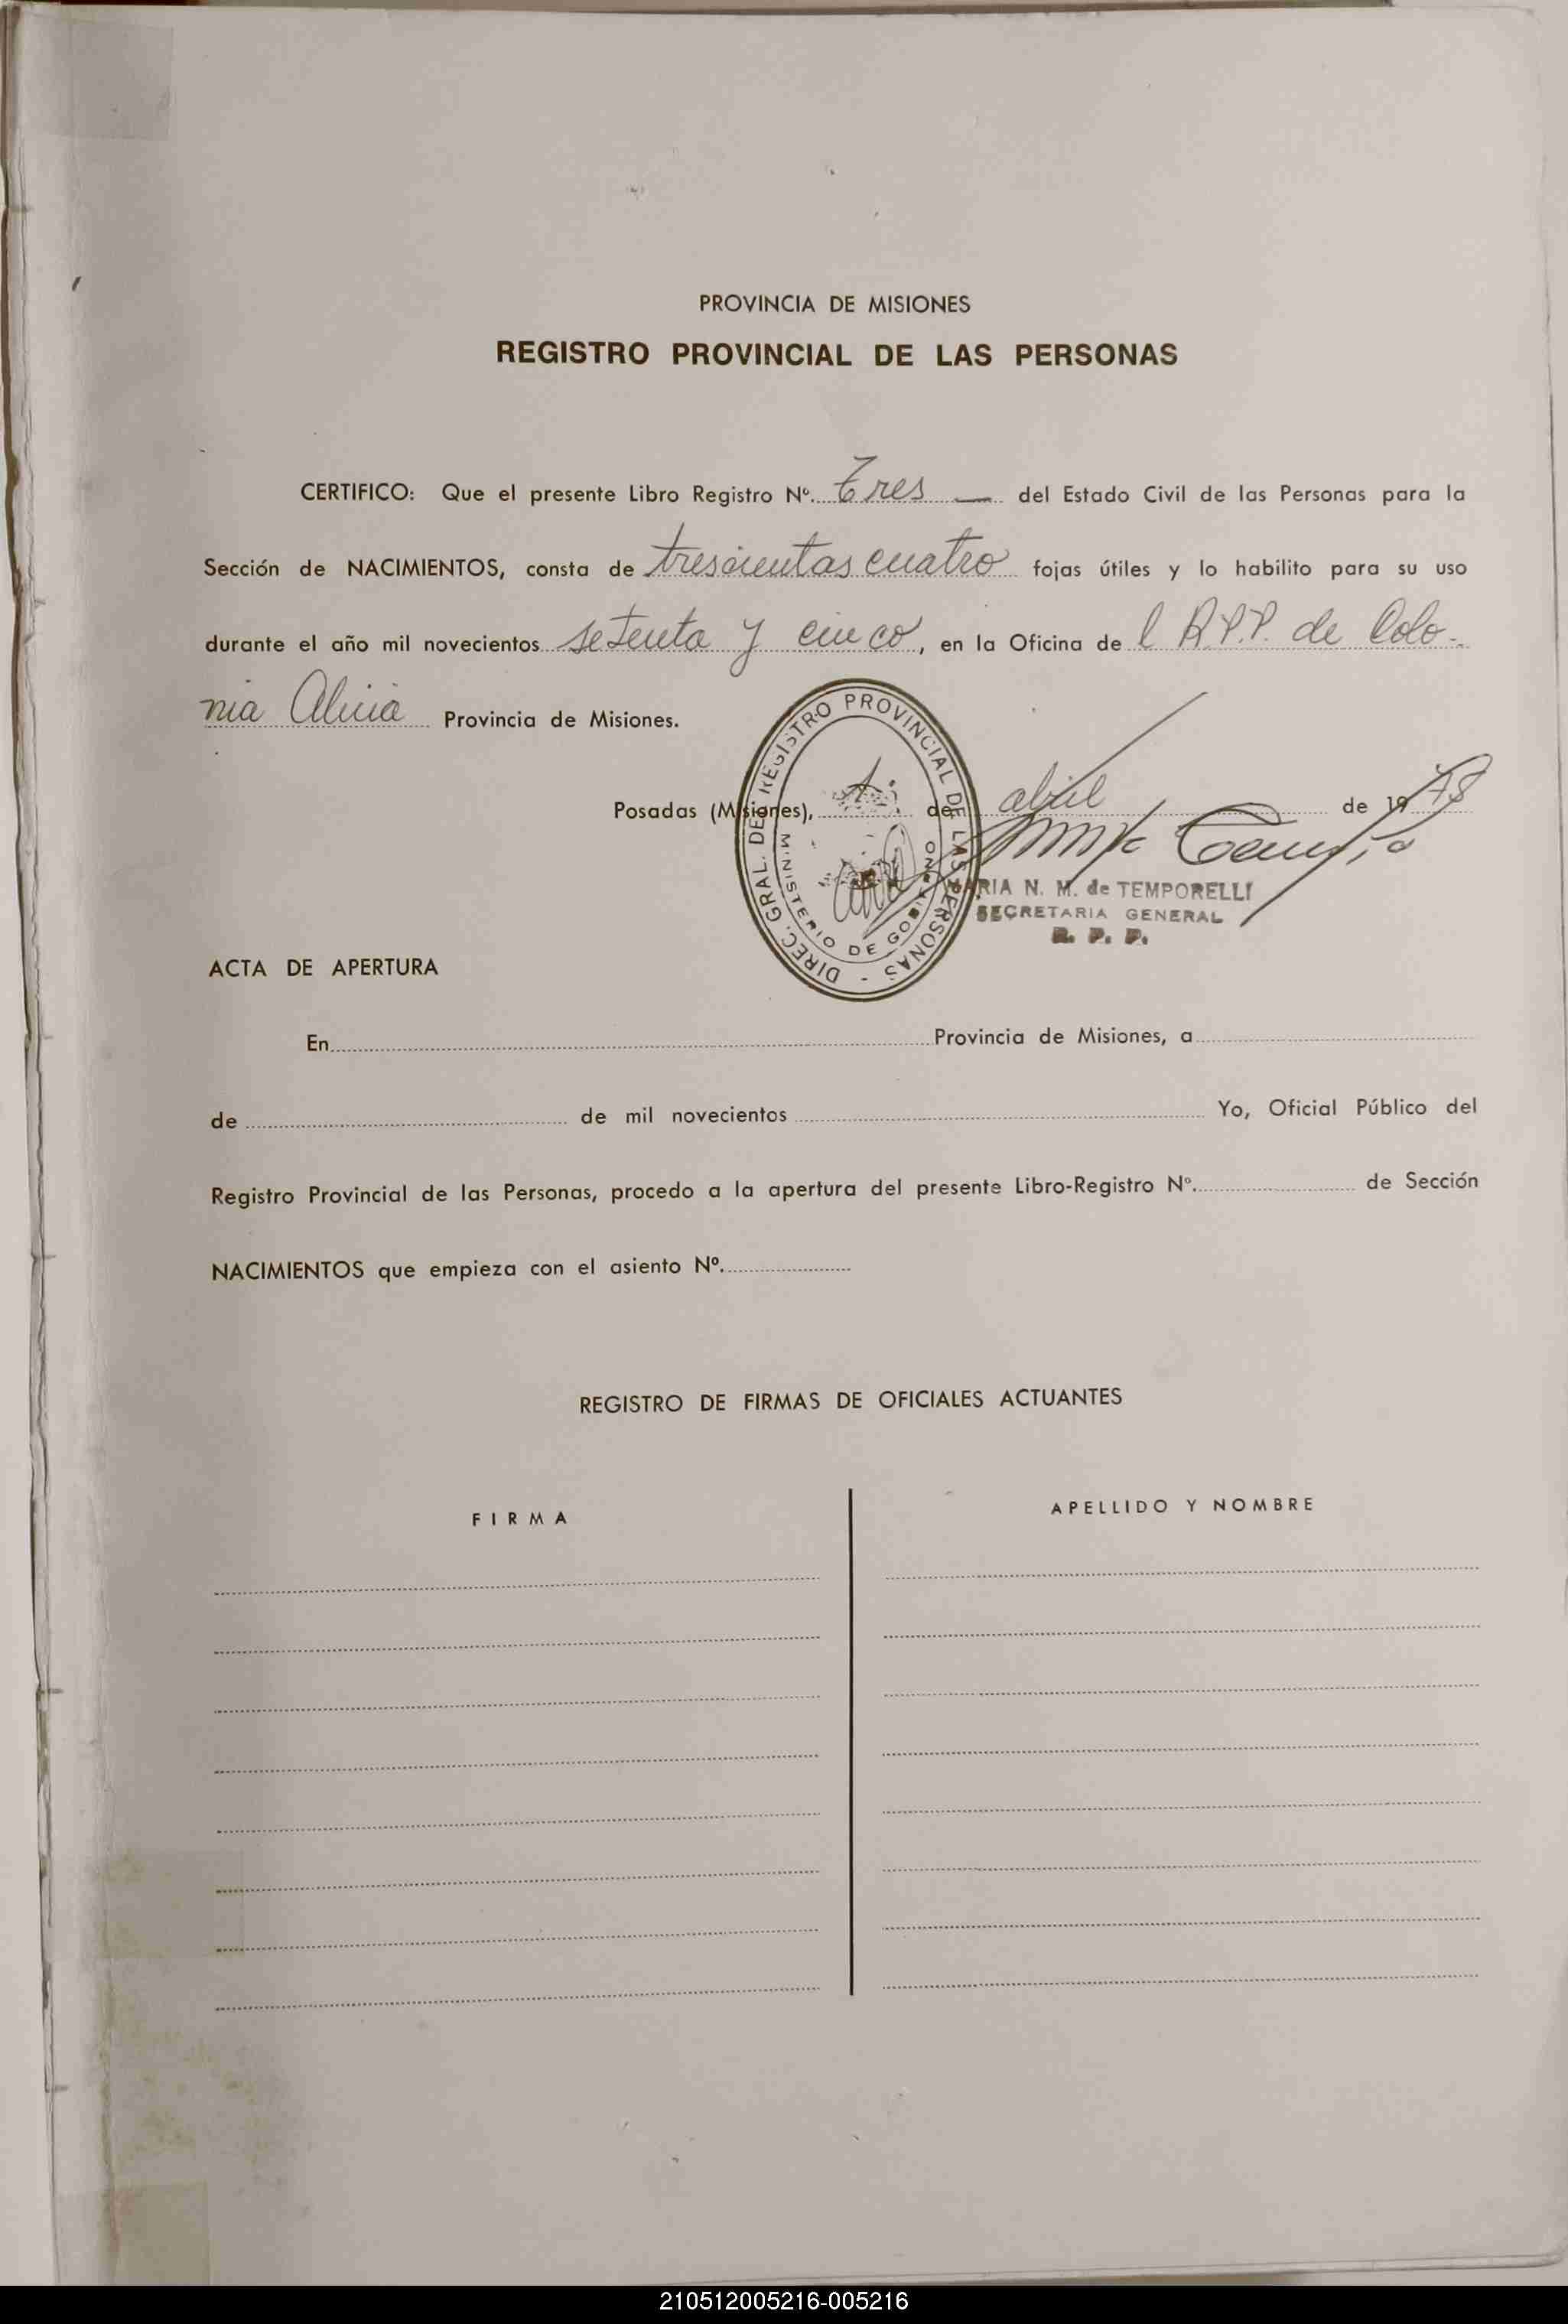 PROVINCIA DE MISIONES
REGISTRO PROVINCIAL DE LAS PERSONAS
CERTIFICO: Que el presente Libro Registro Nº. Tres — del Estado Civil de las Personas para la
Sección de NACIMIENTOS, consta de trescientas cuatro fojas útiles y lo habilito para su uso
durante el año mil novecientos setenta y cinco, en la Oficina del R.P.P. de Colo-
nia Alicia Provincia de Misiones.
Posadas (Misiones), de abril de 1978
DIREC. GRAL. DEL REGISTRO PROVINCIAL DE LAS PERSONAS -
MINISTERIO DE GOBIERNO
MARIA N. M. de TEMPORELLI
SECRETARIA GENERAL
R. P. P.
ACTA DE APERTURA
En Provincia de Misiones, a
de de mil novecientos Yo, Oficial Público del
Registro Provincial de las Personas, procedo a la apertura del presente Libro-Registro Nº. de Sección
NACIMIENTOS que empieza con el asiento Nº.
REGISTRO DE FIRMAS DE OFICIALES ACTUANTES
FIRMA APELLIDO Y NOMBRE
210512005216-005216